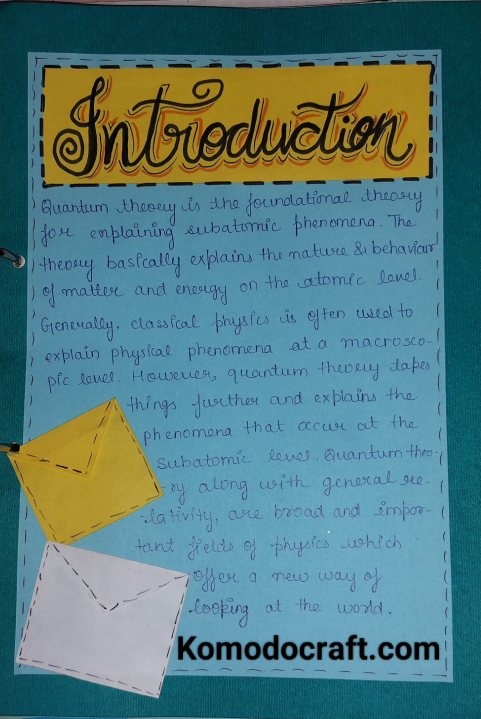 Introduction
Quantum theory is the foundational theory
for enplaining subatomic phenomena. The
theory basically explains the nature & behaviour
of matter and energy on the atomic level.
Generally, classical physics is often used to
explain physical phenomena at a macrosco-
pic level. However, quantum theory takes
things further and explains the
phenomena that occur at the
subatomic level. Quantum theo-
-ry along with general re-
-lativity, are broad and impor-
tant fields of physics which
offer a new way of
looking at the world.
Komodocraft.com